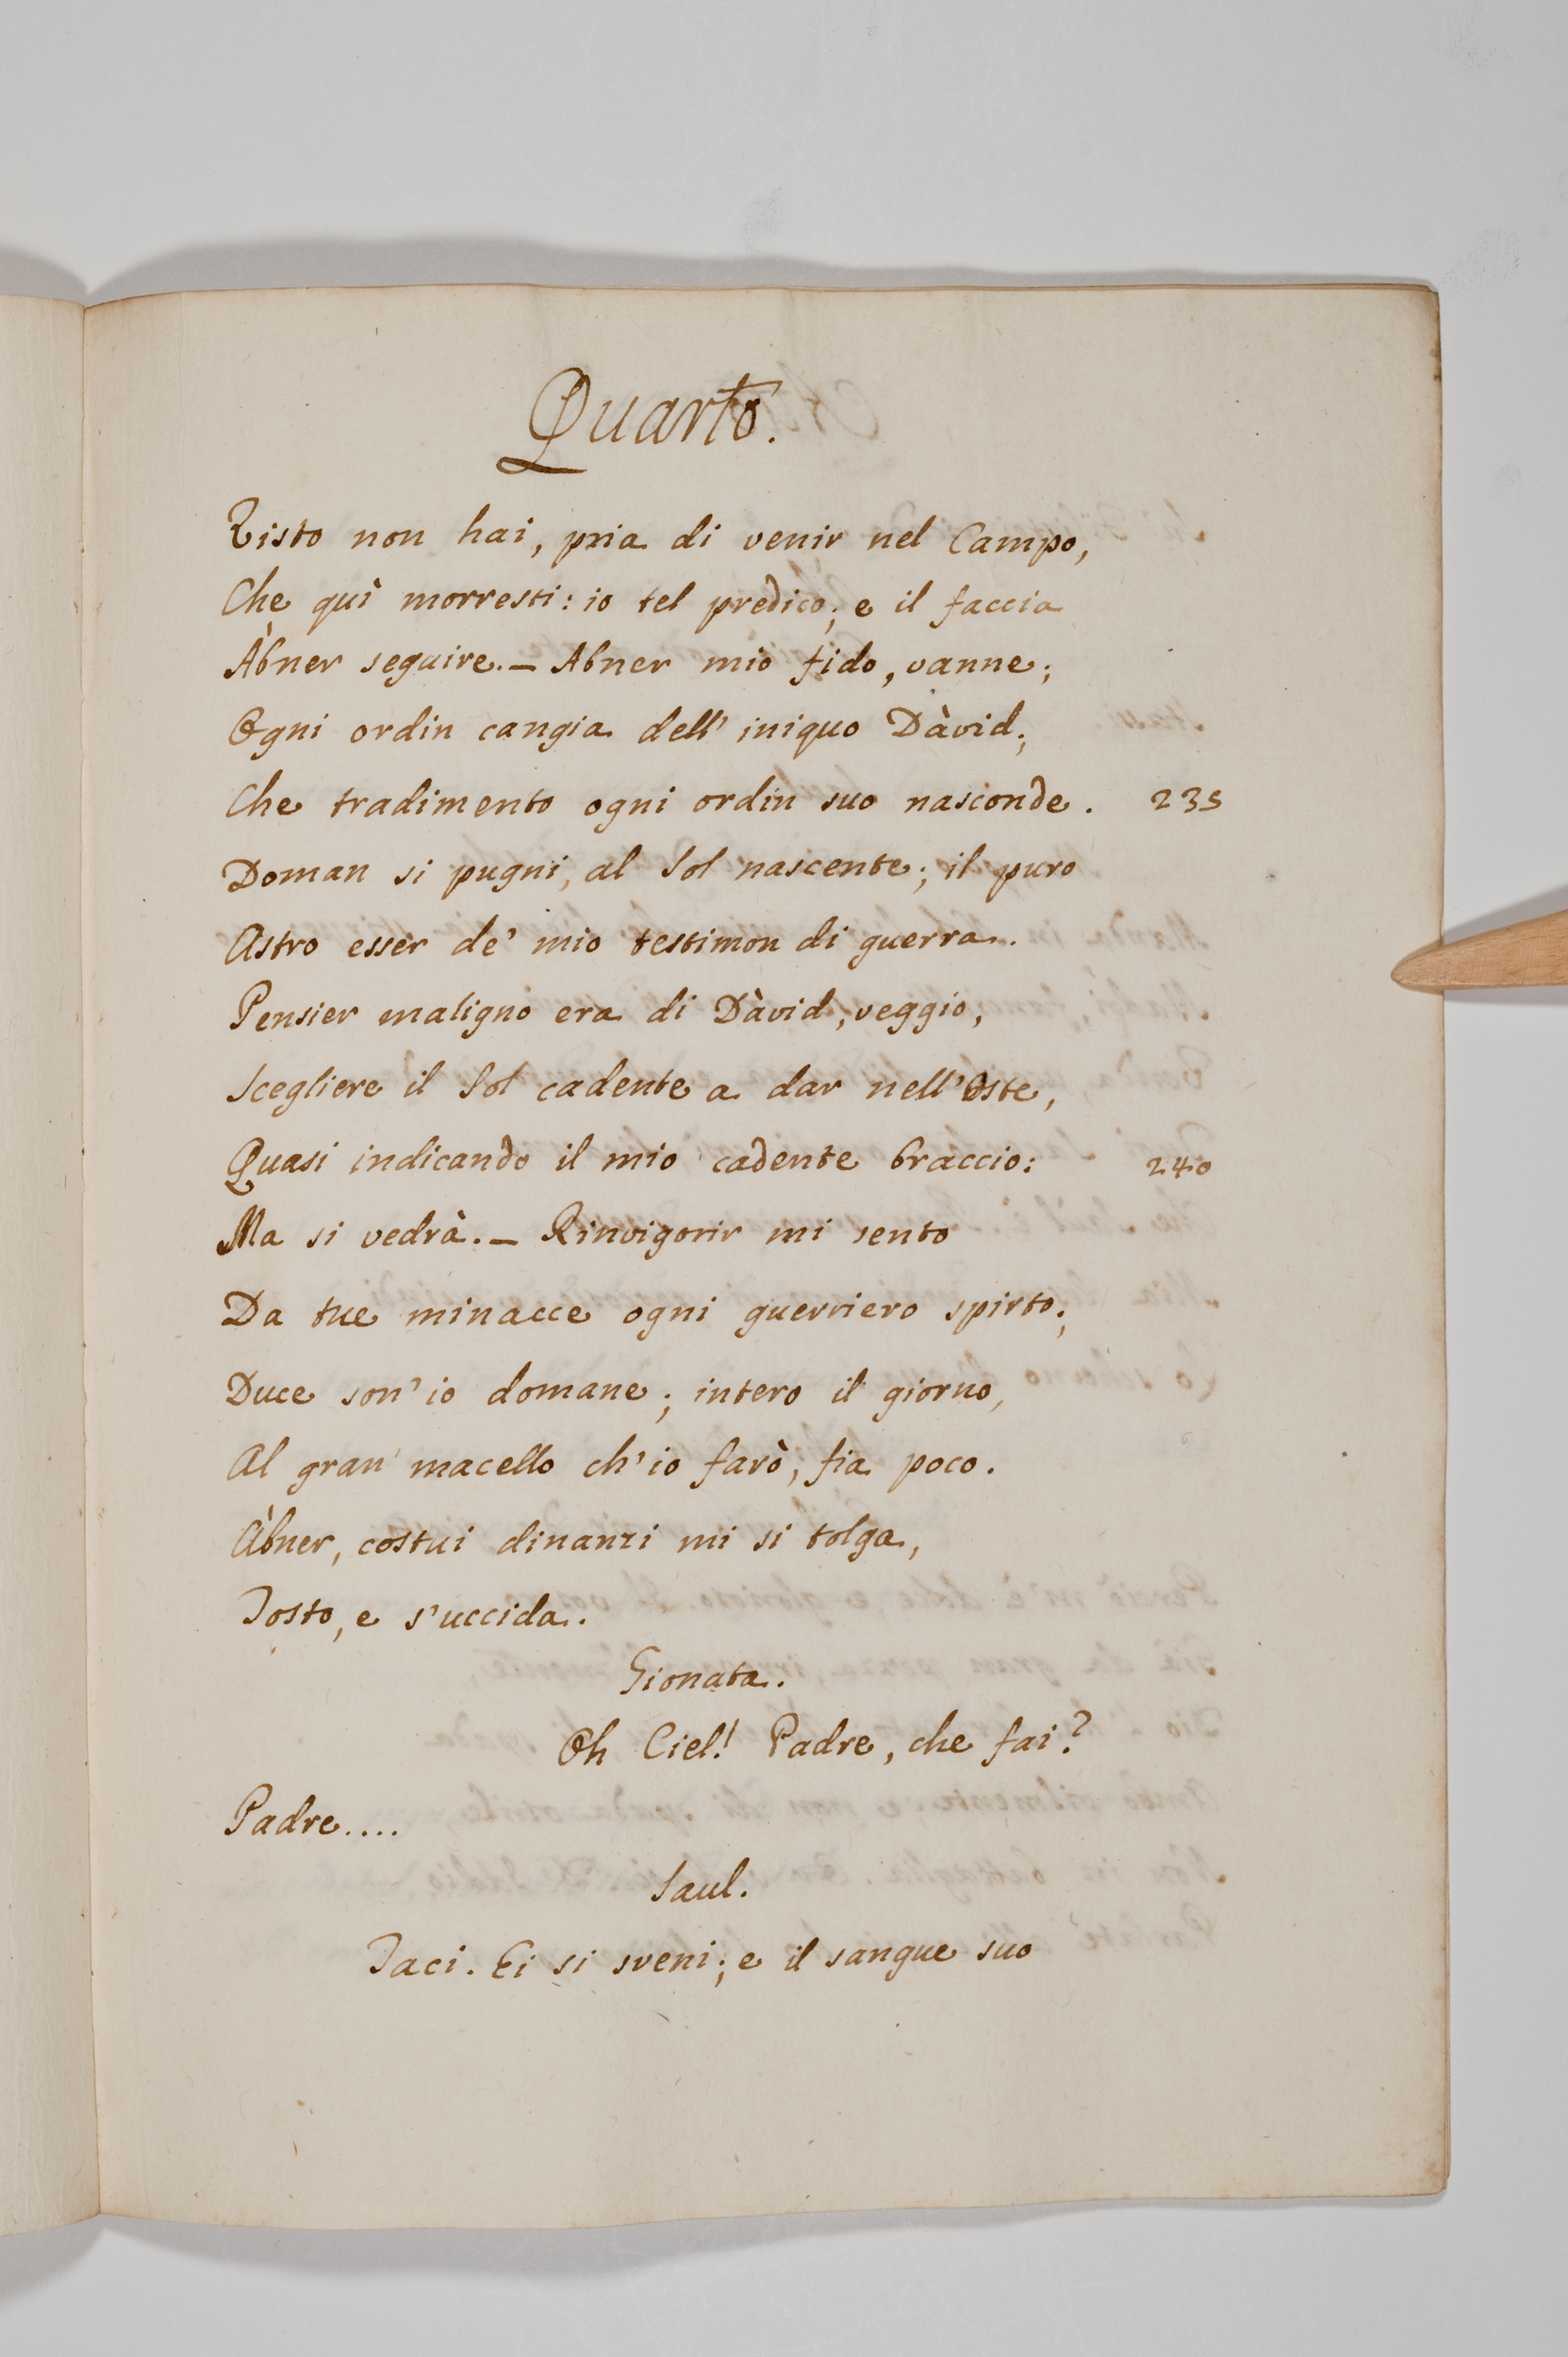 Quarto.
Visto non hai, pria di venir nel Campo,
Che quì morresti: io tel predico; e il faccia
Àbner seguire. — Abner mio fido, vanne;
Ogni ordin cangia dell' iniquo Dàvid;
Che tradimento ogni ordin suo nasconde. 235
Doman si pugni, al Sol nascente; il puro
Astro esser de' mio testimon di guerra.
Pensier maligno era di Dàvid, veggio,
Scegliere il Sol cadente a dar nell'Oste,
Quasi indicando il mio cadente braccio: 240
Ma si vedrà. — Rinvigorir mi sento
Da tue minacce ogni guerriero spirto;
Duce son' io domane; intero il giorno,
Al gran macello ch'io farò, fia poco.
Àbner, costui dinanzi mi si tolga,
Tosto, e s'uccida.
Gionata.
Oh Ciel! Padre, che fai?
Padre....
Saul.
Taci. Ei si sveni; e il sangue suo